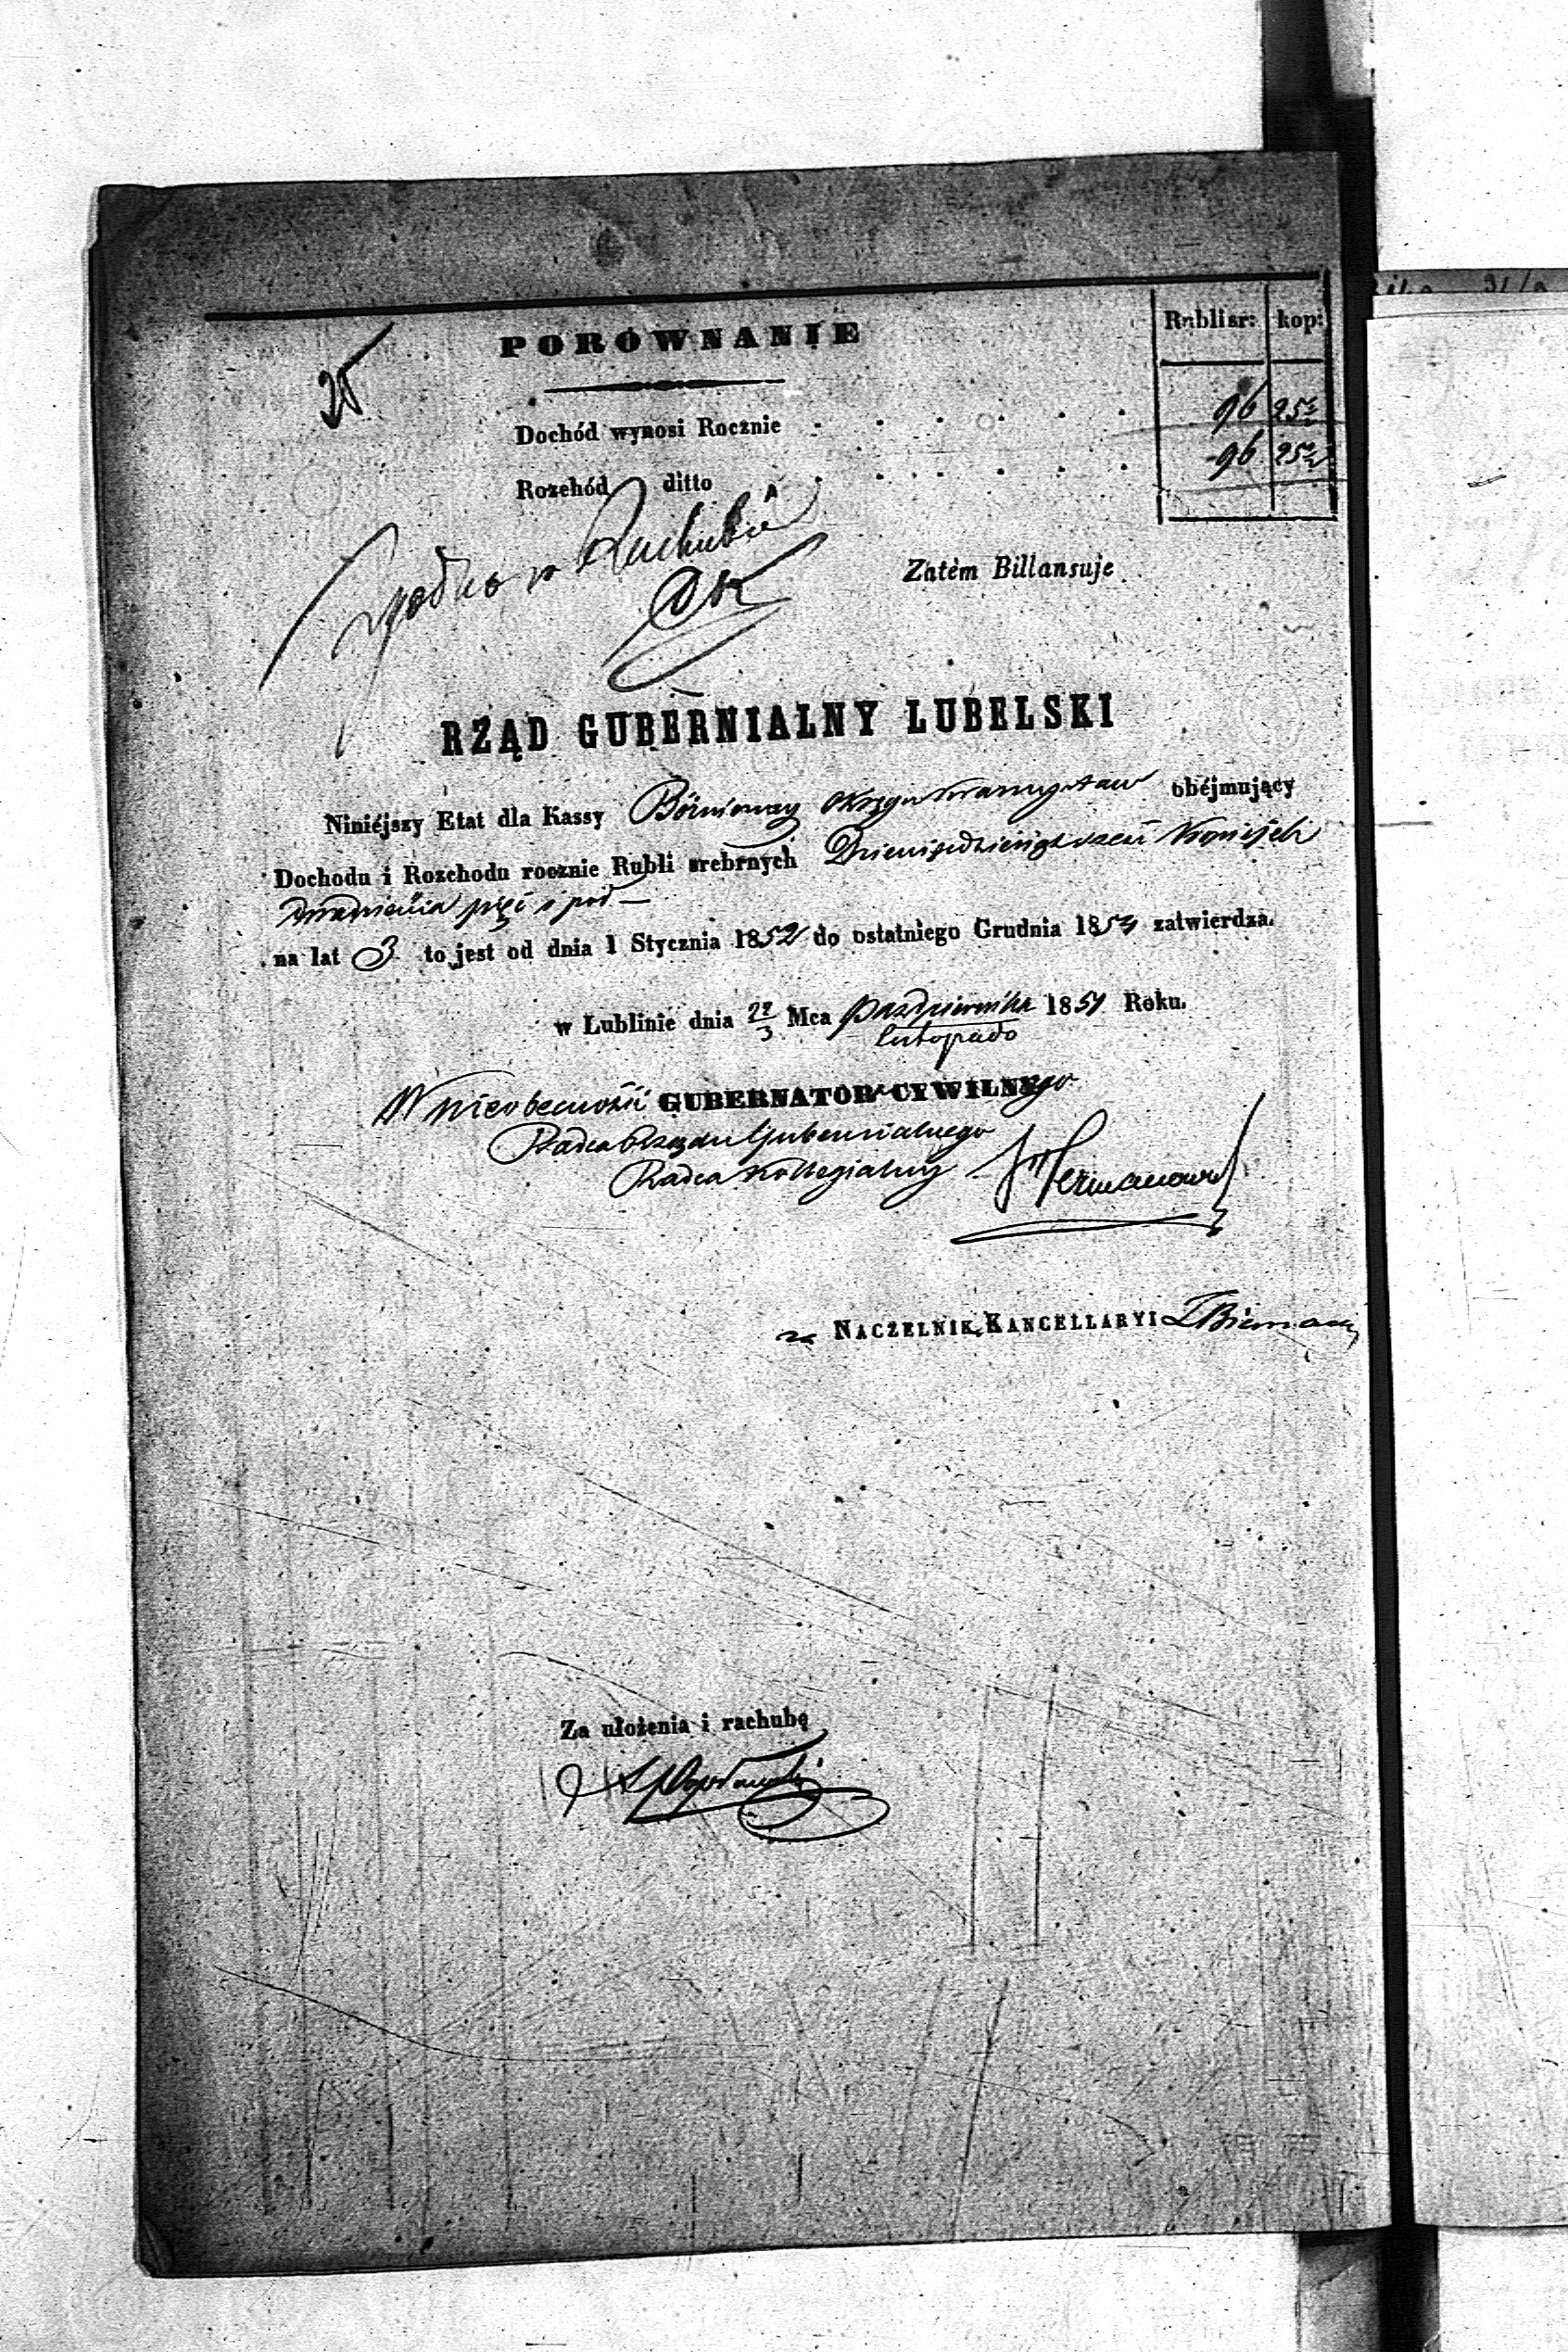 PORÓWNANIE
Rubli sr: kop:
25
Dochód wynosi Rocznie . . . . . . 96 25½
Rozchód ditto . . . . . . 96 25½
Zgodno w Rachubie
Zatém Billansuje
RZĄD GUBERNIALNY LUBELSKI
Niniéjszy Etat dla Kassy Bóżniczey Okręgu Krasnystaw obéjmujący
Dochodu i Rozchodu rocznie Rubli srebrnych Dziewięćdziesiąt sześć Kopiejek
dwadzieścia pięć i pół —
na lat 3 to jest od dnia 1 Stycznia 1852 do ostatniego Grudnia 1854 zatwierdza.
w Lublinie dnia 22/3 Mca Października 1851 Roku.
listopada
W nieobecności GUBERNATORA CYWILNEgo
Radca Rządu Gubernialnego
Radca Kollegialny
za NACZELNIKa KANCELLARYI
Za ułożenia i rachubę